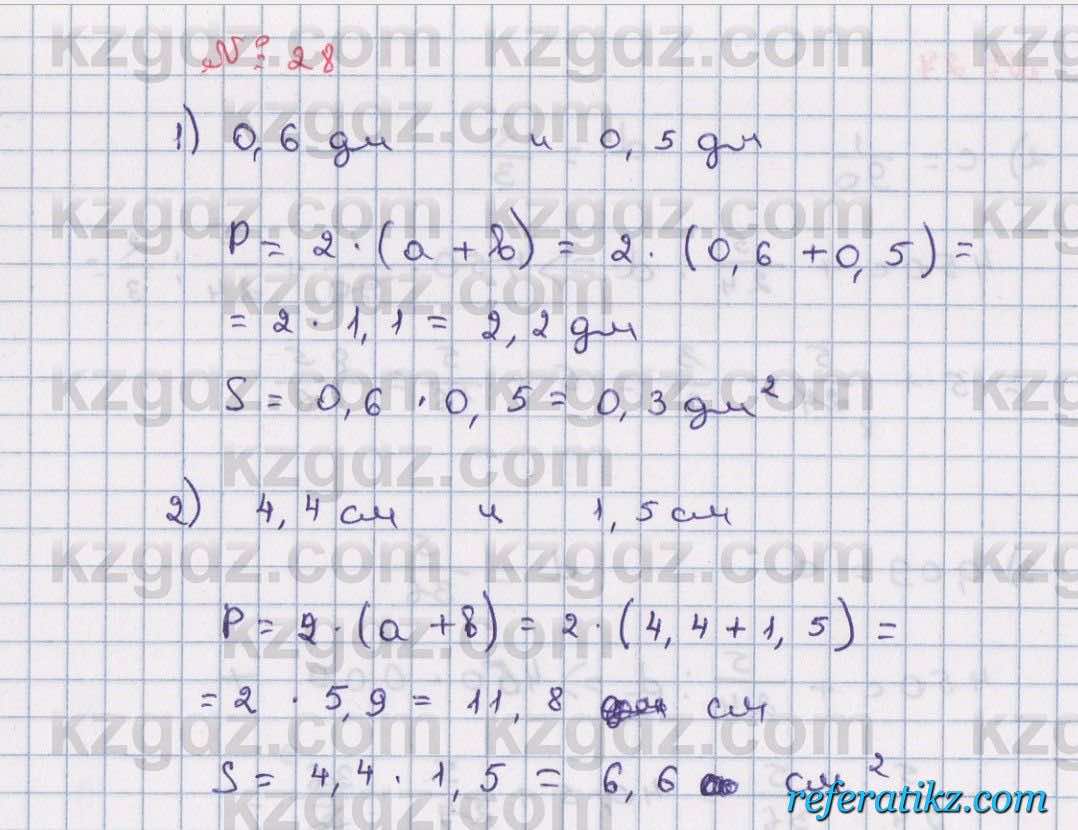 № 28
1) 0,6 дм и 0,5 дм
P = 2 · (a + b) = 2 · (0,6 + 0,5) =
= 2 · 1,1 = 2,2 дм
S = 0,6 · 0,5 = 0,3 дм²
2) 4,4 см и 1,5 см
P = 2 · (a + b) = 2 · (4,4 + 1,5) =
= 2 · 5,9 = 11,8 см
S = 4,4 · 1,5 = 6,6 см²
kzgdz.com
referatikz.com